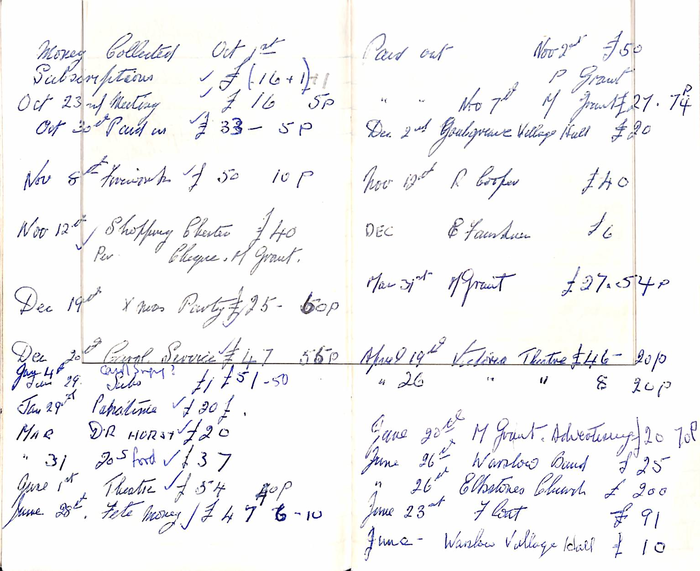 Money Collected Oct 1st
Subscriptions £ (16+1)+1
Oct 23rd Meeting £ 16 5p
Oct 30th Paid in £ 33 - 5p
Nov 8th £ 50 10p
Nov 12th Shopping Chester £ 40
Per Cheque. M Grant.
Dec 19th Xmas Party £ 25 - 60p
Dec 20th Carol Service £ 47 56p
Jan 29. Subs £1 £51-50
Jan 29th £20
MAR DR HURST £20
" 31 £37
June 1st Theatre £54 40p
June 28th. Fete Money £ 47 6-10
Paid out Nov 2nd £50
P Grant
" " Nov 7th M Grant £27.74p
Dec 2nd Village Hall £20
Nov 12th R Cooper £40
DEC £6
Mar 31st M Grant £27.54p
April 19th Victoria Theatre £46- 20p
" 26 " " 8 20p
June 20th M Grant. Advertising £20 70p
June 26th Warslow Band £25
" 26th Elkstones Church £200
June 23rd Float £91
June - Warslow Village Hall £10